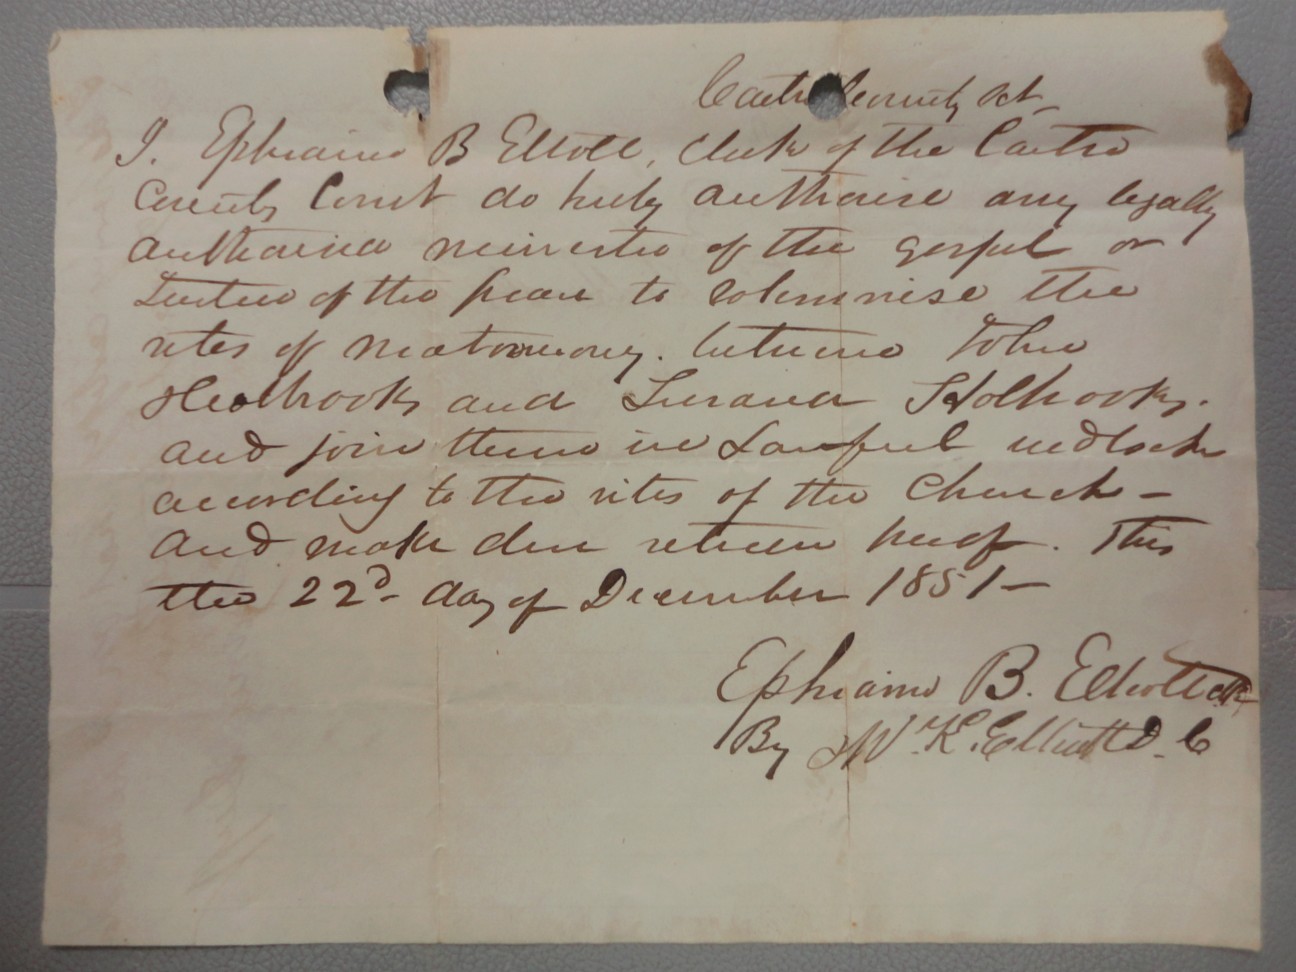 Carter County Sct
I. Ephraim B Elliott, clerk of the Carter
County Court do heby authorise any legally
authorised minister of the gospel or
Justice of the peace to solemnise the
rites of matrimony. between John
Holbrooks and Lurana Holbrooks.
and join them in Lawful wedlock
according to the rites of the Church -
and make due return hereof. This
the 22d day of December 1851 -
Ephraim B. Elliott clk
By Wm K. Elliott D. C